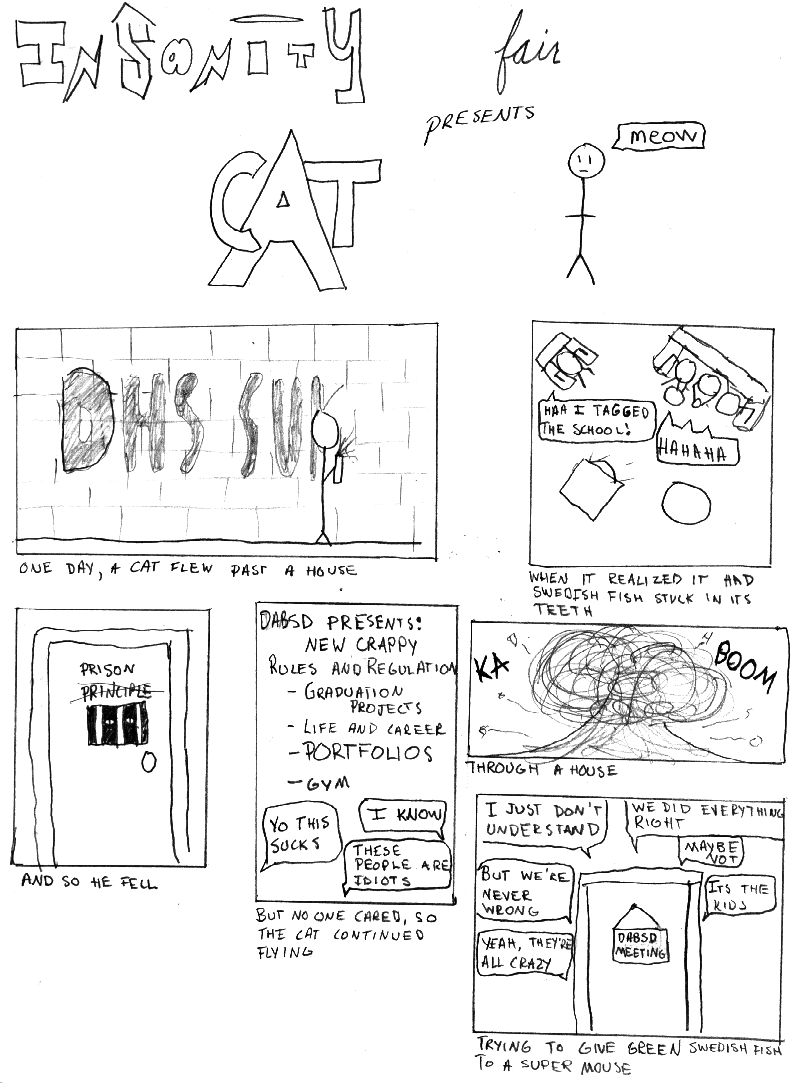 INSANITY fair
PRESENTS
CAT
meow
DHS SU
ONE DAY, A CAT FLEW PAST A HOUSE
HAA I TAGGED
THE SCHOOL!
HAHAHA
WHEN IT REALIZED IT HAD
SWEDISH FISH STUCK IN ITS
TEETH
PRISON
PRINCIPLE
AND SO HE FELL
DABSD PRESENTS:
NEW CRAPPY
RULES AND REGULATION
- GRADUATION
PROJECTS
- LIFE AND CAREER
- PORTFOLIOS
- GYM
YO THIS
SUCKS
I KNOW
THESE
PEOPLE ARE
IDIOTS
BUT NO ONE CARED, SO
THE CAT CONTINUED
FLYING
KA BOOM
THROUGH A HOUSE
I JUST DON'T
UNDERSTAND
WE DID EVERYTHING
RIGHT
MAYBE
NOT
BUT WE'RE
NEVER
WRONG
ITS THE
KIDS
YEAH, THEY'RE
ALL CRAZY
DABSD
MEETING
TRYING TO GIVE GREEN SWEDISH FISH
TO A SUPER MOUSE